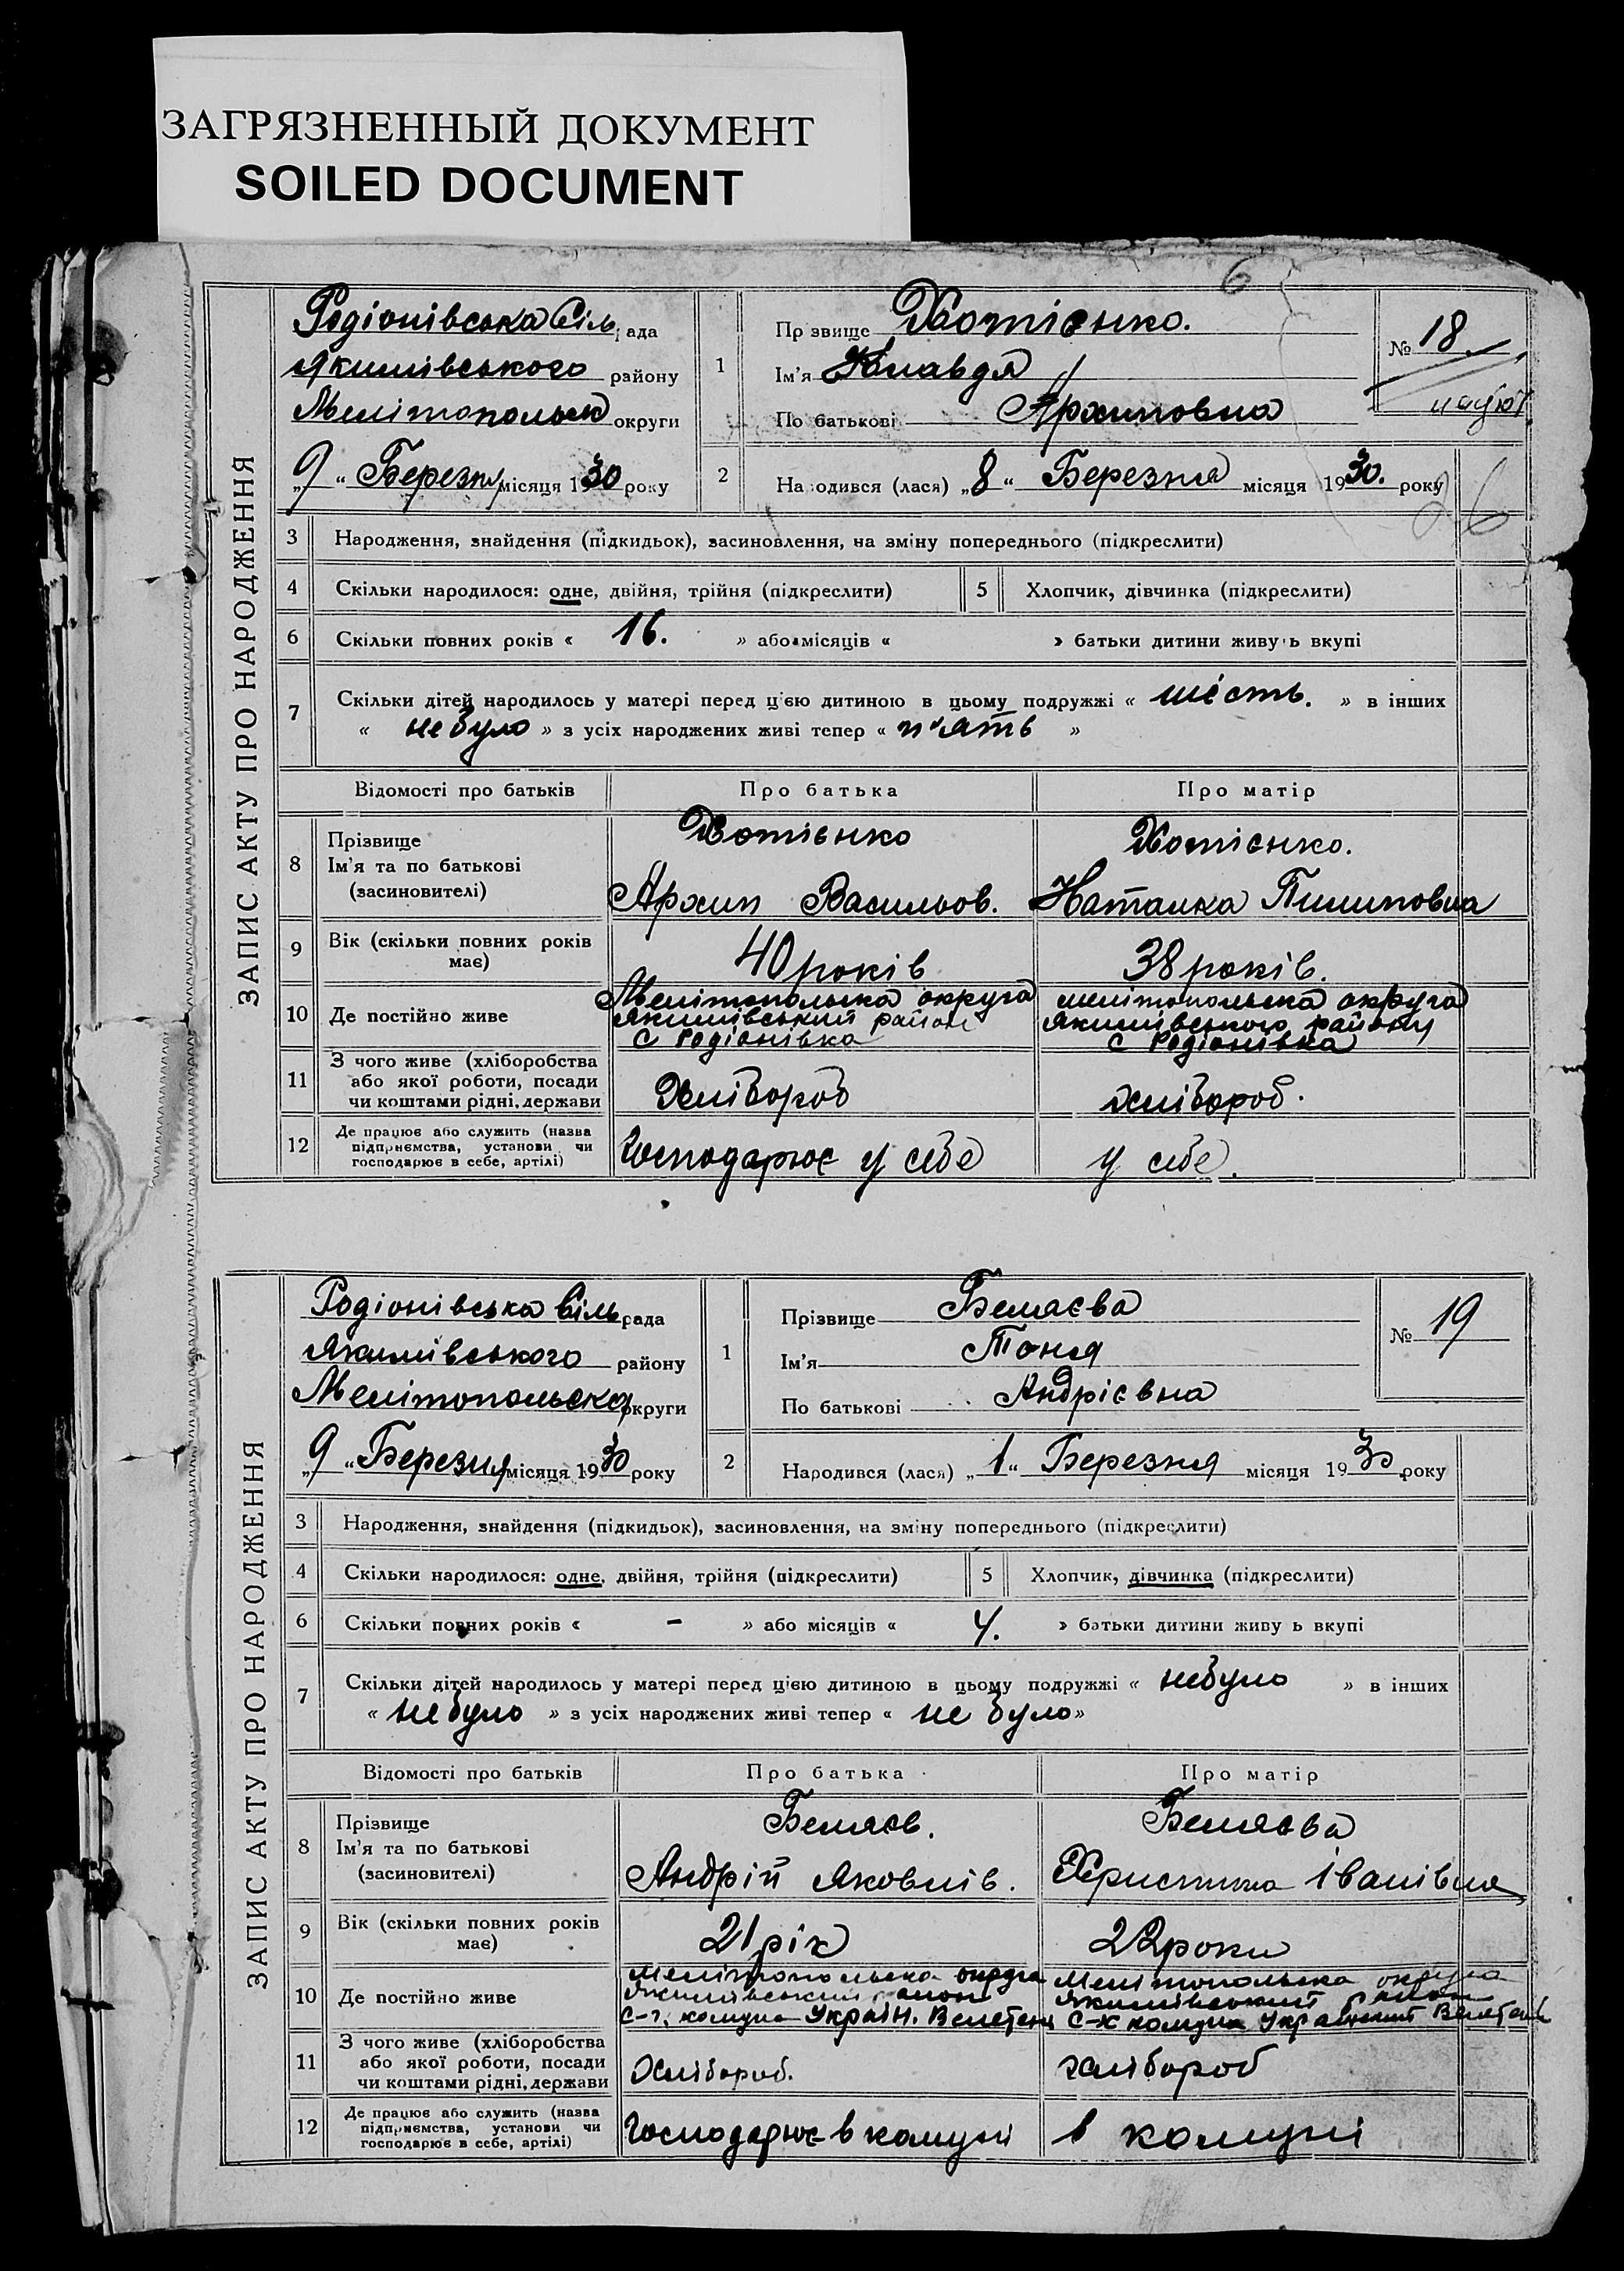 ЗАГРЯЗНЕННЫЙ ДОКУМЕНТ
SOILED DOCUMENT
6
ЗАПИС АКТУ ПРО НАРОДЖЕННЯ
Родіонівська Сіль рада
Якимівського району
Мелітопольськ округи
„9“ Березня місяця 1930 року
1
Прізвище Хотієнко.
Ім'я Клавдя
По батькові Архиповна
№ 18
2
Народився (лася) „8“ Березня місяця 1930. року
26
3 Народження, знайдення (підкидьок), засиновлення, на зміну попереднього (підкреслити)
4 Скільки народилося: одне, двійня, трійня (підкреслити) 5 Хлопчик, дівчинка (підкреслити)
6 Скільки повних років « 16. » або місяців « » батьки дитини живуть вкупі
7 Скільки дітей народилось у матері перед цією дитиною в цьому подружжі « шість. » в інших
« небуло » з усіх народжених живі тепер « п'ять »
Відомості про батьків Про батька Про матір
8 Прізвище Хотієнко Хотієнко.
Ім'я та по батькові
(засиновителі) Архип Васильов. Наталка Пилиповна
9 Вік (скільки повних років має) 40 років 38 років.
10 Де постійно живе Мелітопольська округа мелітопольська округа
Якимівський район Якимівського району
с Родіонівка с Родіонівка
11 З чого живе (хліборобства
або якої роботи, посади Хлібороб хлібороб.
чи коштами рідні, держави
12 Де працює або служить (назва
підприємства, установи чи Господарює у себе у себе.
господарює в себе, артілі)
ЗАПИС АКТУ ПРО НАРОДЖЕННЯ
Родіонівська Сіль рада
Якимівського району
Мелітопольська округи
„9“ Березня місяця 1930 року
1
Прізвище Беляєва
Ім'я Тоня
По батькові Андрієвна
№ 19
2
Народився (лася) „1“ Березня місяця 1930 року
3 Народження, знайдення (підкидьок), засиновлення, на зміну попереднього (підкреслити)
4 Скільки народилося: одне, двійня, трійня (підкреслити) 5 Хлопчик, дівчинка (підкреслити)
6 Скільки повних років « - » або місяців « 4. » батьки дитини живуть вкупі
7 Скільки дітей народилось у матері перед цією дитиною в цьому подружжі « небуло » в інших
« не було » з усіх народжених живі тепер « не було »
Відомості про батьків Про батька Про матір
8 Прізвище Беляєв. Беляєва
Ім'я та по батькові
(засиновителі) Андрій Яковлів. Христина Іванівна
9 Вік (скільки повних років має) 21 рік 22 роки
10 Де постійно живе мелітопольська округа Мелітопольська округа
Якимівський район Якимівський район
С-г. комуна Україн. Велетень С-х комуна Український Велетень
11 З чого живе (хліборобства
або якої роботи, посади Хлібороб. хлібороб
чи коштами рідні, держави
12 Де працює або служить (назва
підприємства, установи чи Господарює в комуні в комуні
господарює в себе, артілі)